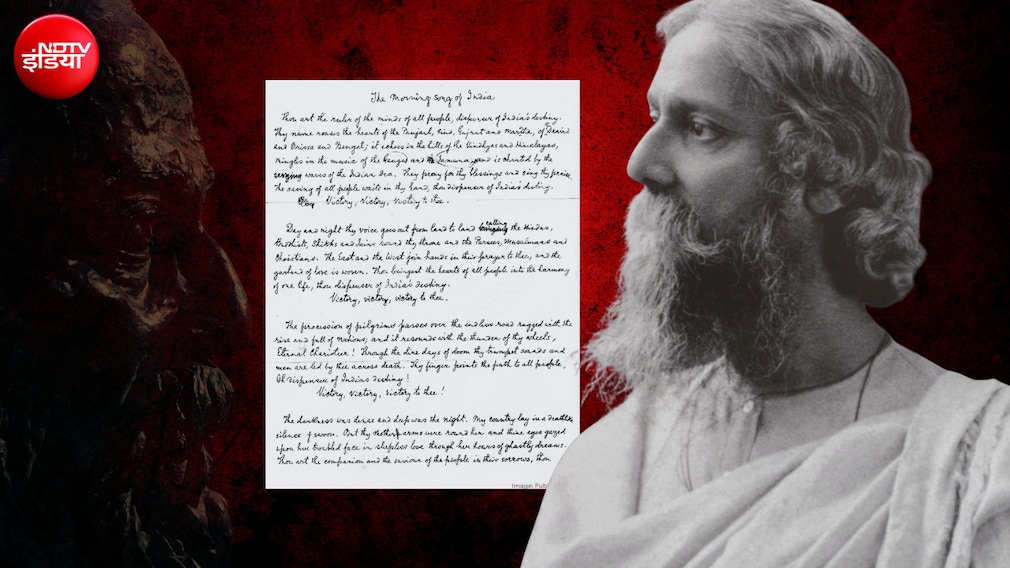 NDTV
इंडिया
The Morning song of India
Thou art the ruler of the minds of all people, dispenser of India's destiny.
Thy name rouses the hearts of the Punjab, Sind, Gujrat and Maratha, of Dravid
and Orissa and Bengal; it echoes in the hills of the Vindhyas and Himalayas,
mingles in the music of the and and is chanted by the
waves of the Indian Sea. They pray for thy blessings and sing thy praise,
The saving of all people waits in thy hand, thou dispenser of India's destiny.
Victory, Victory, Victory to thee.
Day and night thy voice goes out from land to land calling the Hindus,
Buddhists, Sikhs and Jains round thy throne and the Parsees, Musulmans and
Christians. The East and the West join hands in their prayer to thee, and the
garland of love is woven. Thou bringest the hearts of all people into the harmony
of one life, thou dispenser of India's destiny.
Victory, victory, victory to thee.
The procession of pilgrims passes over the endless road rugged with the
rise and fall of nations; and it resounds with the thunder of thy wheels,
Eternal Charioteer! Through the dire days of doom thy trumpet sounds and
men are led by thee across death. Thy finger points the path to all people,
Oh dispenser of India's destiny!
Victory, victory, victory to thee!
The darkness was dense and deep was the night. My country lay in a
silence of swoon. But thy mother arms were round her and thine eyes gazed
upon her troubled face in sleepless love through her hours of ghastly dreams.
Thou art the companion and the saviour of the people in their sorrows, thou
Image: